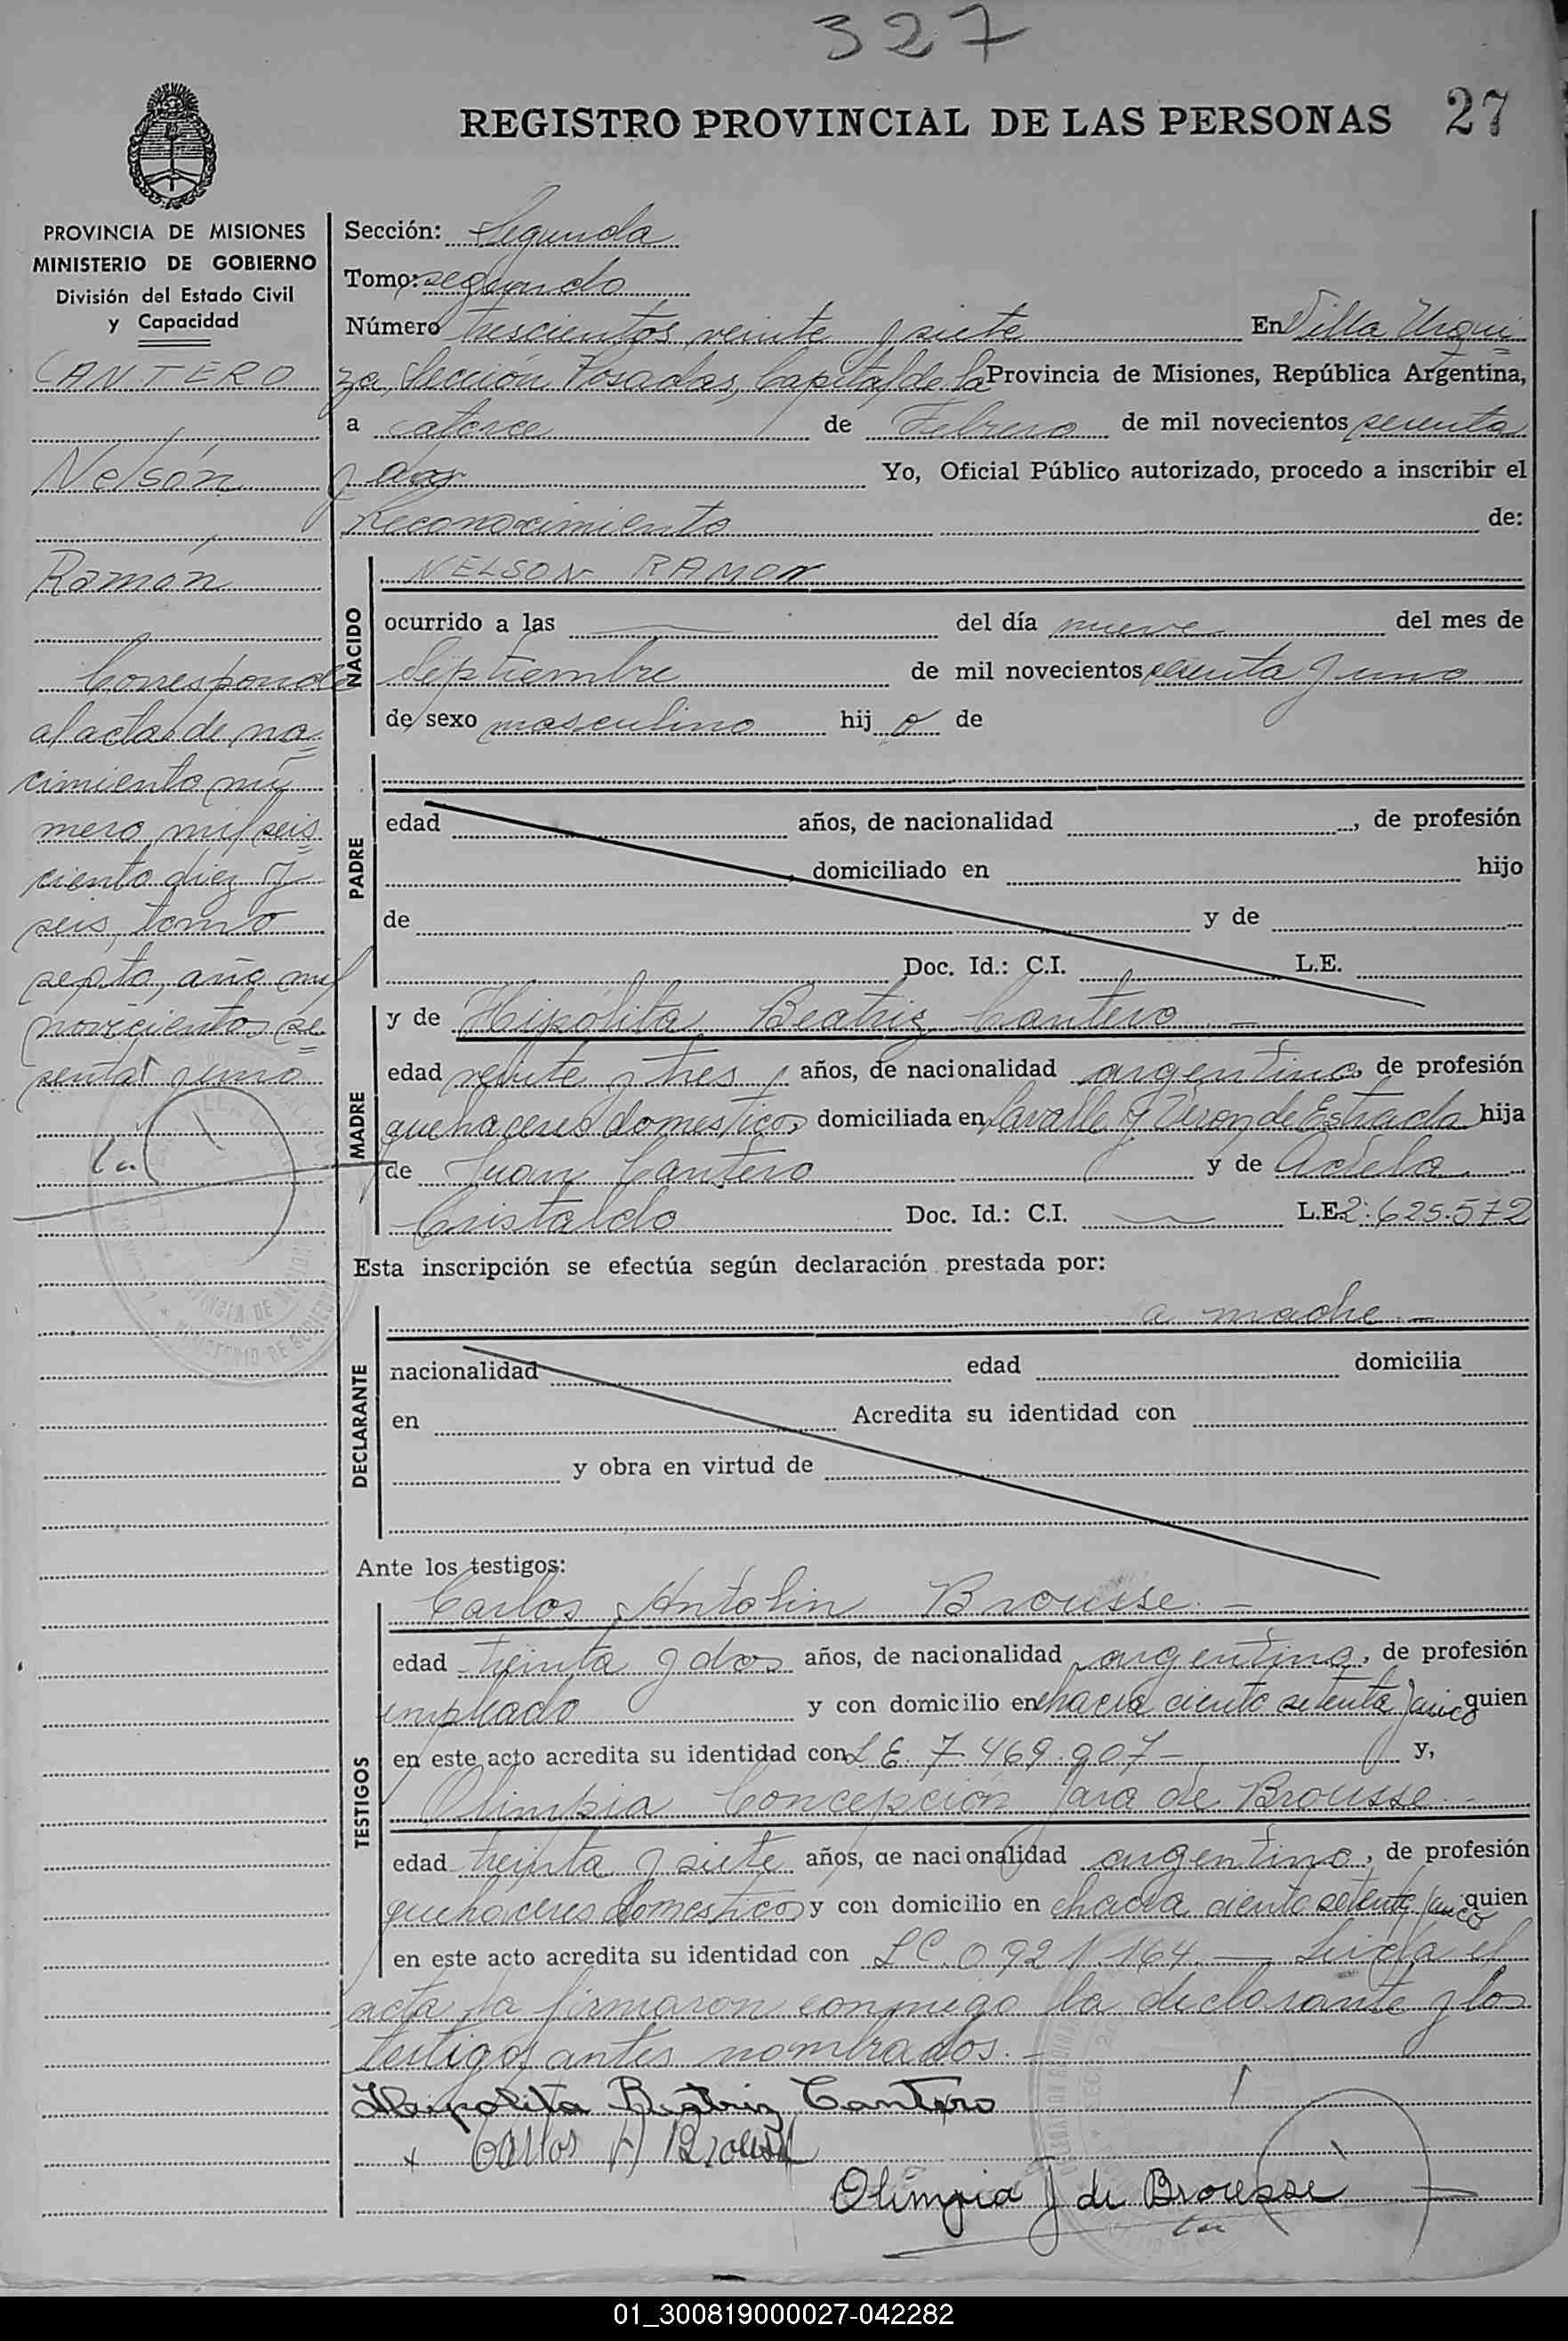 327
REGISTRO PROVINCIAL DE LAS PERSONAS 27
PROVINCIA DE MISIONES
MINISTERIO DE GOBIERNO
División del Estado Civil
y Capacidad
CANTERO
Nelsón
Ramón
Corresponde
al acta de na=
cimiento nú
mero mil seis=
ciento diez y
seis, tomo
septo, año mil
novecientos se=
senta y uno
Sección: Segunda
Tomo: segundo
Número trescientos veinte y siete En Villa Urqui=
za, Sección Posadas, Capital de la Provincia de Misiones, República Argentina,
a catorce de Febrero de mil novecientos sesenta
y dos Yo, Oficial Público autorizado, procedo a inscribir el
Reconocimiento de:
NACIDO
NELSON RAMON
ocurrido a las del día nueve del mes de
Septiembre de mil novecientos sesenta y uno
de sexo masculino hijo de
PADRE
edad años, de nacionalidad , de profesión
domiciliado en hijo
de y de
Doc. Id.: C.I. L.E.
MADRE
y de Hipólita Beatriz Cantero –
edad veinte y tres años, de nacionalidad argentina, de profesión
quehaceres domesticos domiciliada en Lavalle y Veron de Estrada hija
de Juan Cantero y de Adela
Cristaldo Doc. Id.: C.I. L.E. 2.625.572
Esta inscripción se efectúa según declaración prestada por:
DECLARANTE
a madre –
nacionalidad edad domicilia
en Acredita su identidad con
y obra en virtud de
Ante los testigos:
TESTIGOS
Carlos Antolin Brousse. –
edad treinta y dos años, de nacionalidad argentina, de profesión
empleado y con domicilio en chacra ciento setenta y cinco quien
en este acto acredita su identidad con L E. 7.469.907 – y,
Olimpia Concepción Jara de Brousse. –
edad treinta y siete años, de nacionalidad argentina, de profesión
quehaceres domesticos y con domicilio en chacra ciento setenta y cinco quien
en este acto acredita su identidad con L C. 0.921.164. — el
acta la firmaron conmigo la declarante y los
testigos antes nombrados. –
Heipolita Beatriz Cantero
+ Carlos A Brousse
Olimpia J de Brousse
01_300819000027-042282